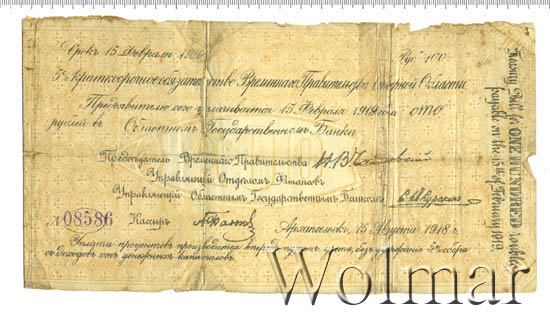 Срокъ 15 Февраля
Руб. 100
5% краткосрочное обязательство Временнаго Правительства Сѣверной Области
Предъявителю сего уплачивается 15 Февраля 1919 года сто
рублей въ Областномъ Государственномъ Банкѣ
Предсѣдатель Временнаго Правительства
Управляющій Отдѣломъ Финансовъ
Управляющій Областнымъ Государственнымъ Банкомъ
Л 08586 Кассиръ
Архангельскъ, 15 Августа 1918 г.
Уплата процентовъ производится впредь путемъ учета, безъ удержанія 5% сбора
съ доходовъ отъ денежныхъ капиталовъ.
Treasury Bill for ONE HUNDRED roubles
payable on the 15th of February 1919
Wolmar